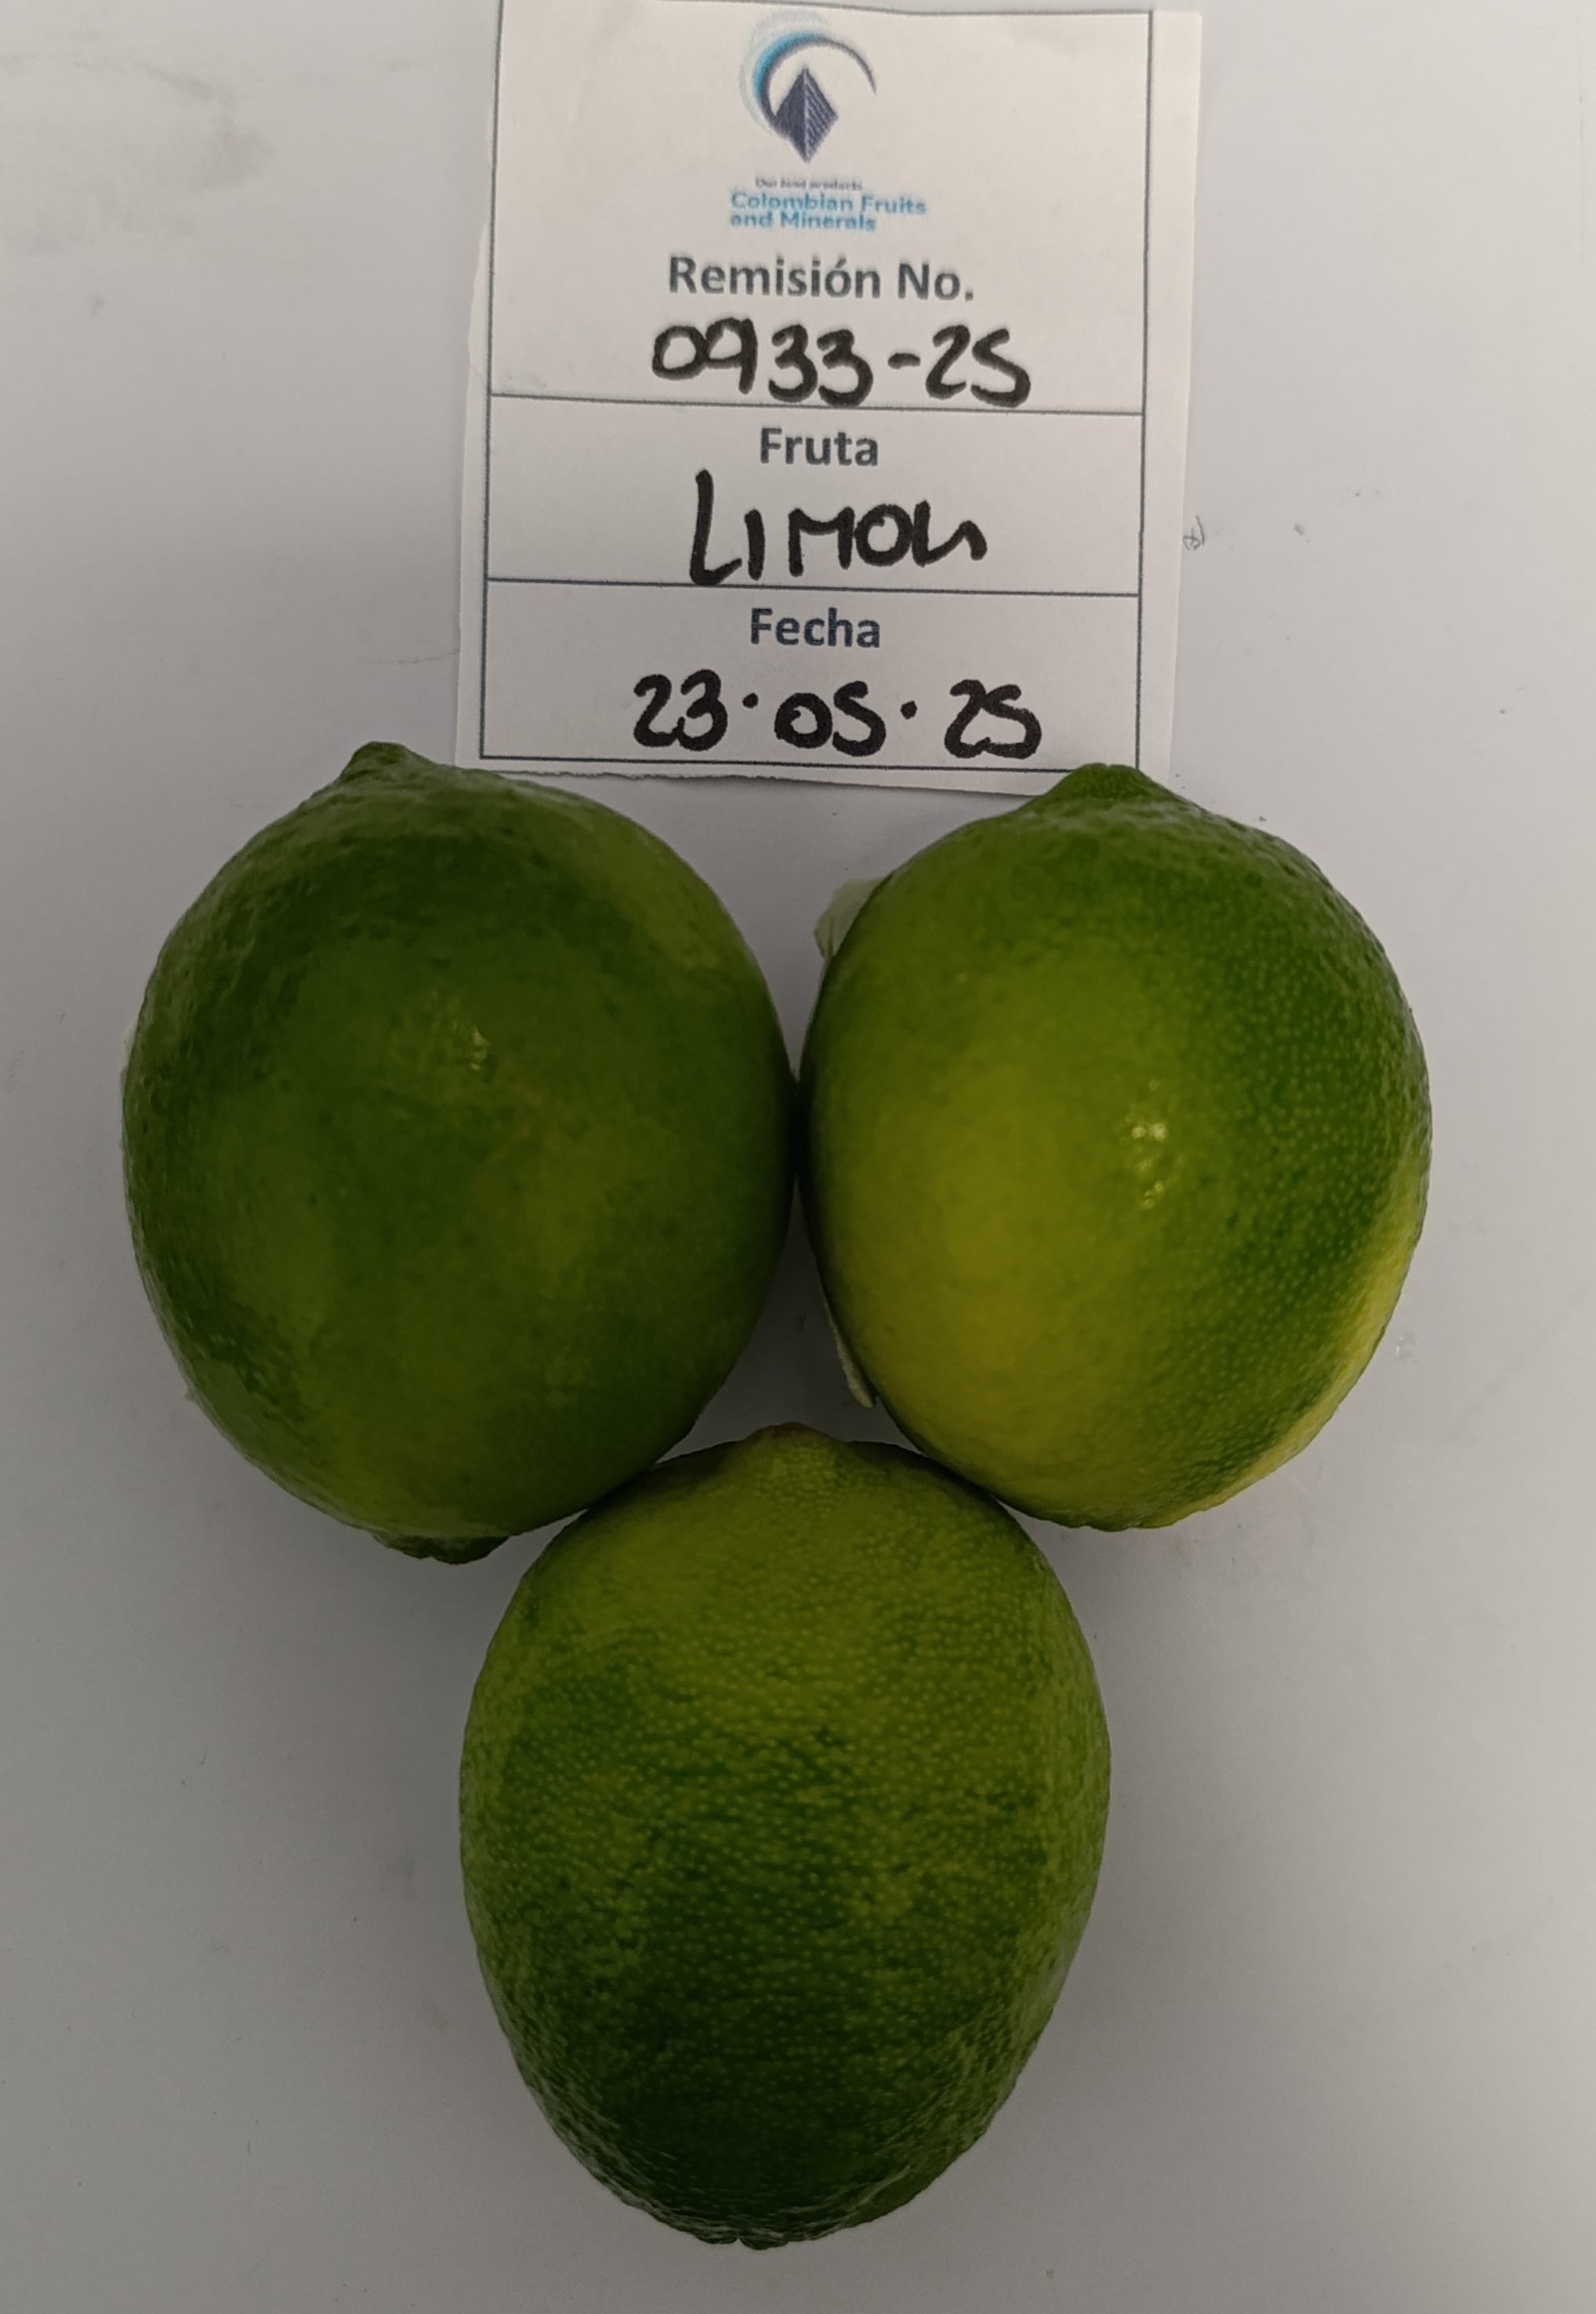 Our best products
Colombian Fruits
and Minerals
Remisión No.
0933-25
Fruta
LIMON
Fecha
23·05·25